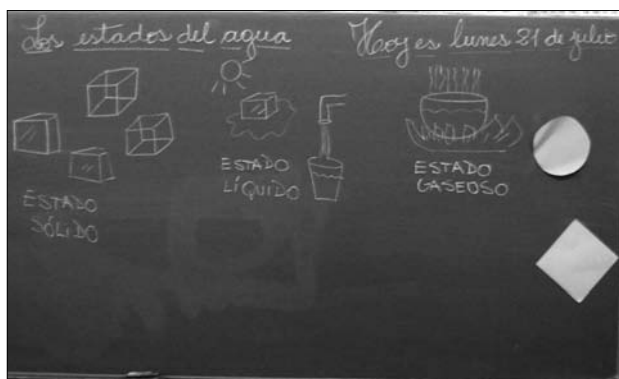 Los estados del agua
Hoy es lunes 21 de julio
ESTADO
SÓLIDO
ESTADO
LÍQUIDO
ESTADO
GASEOSO